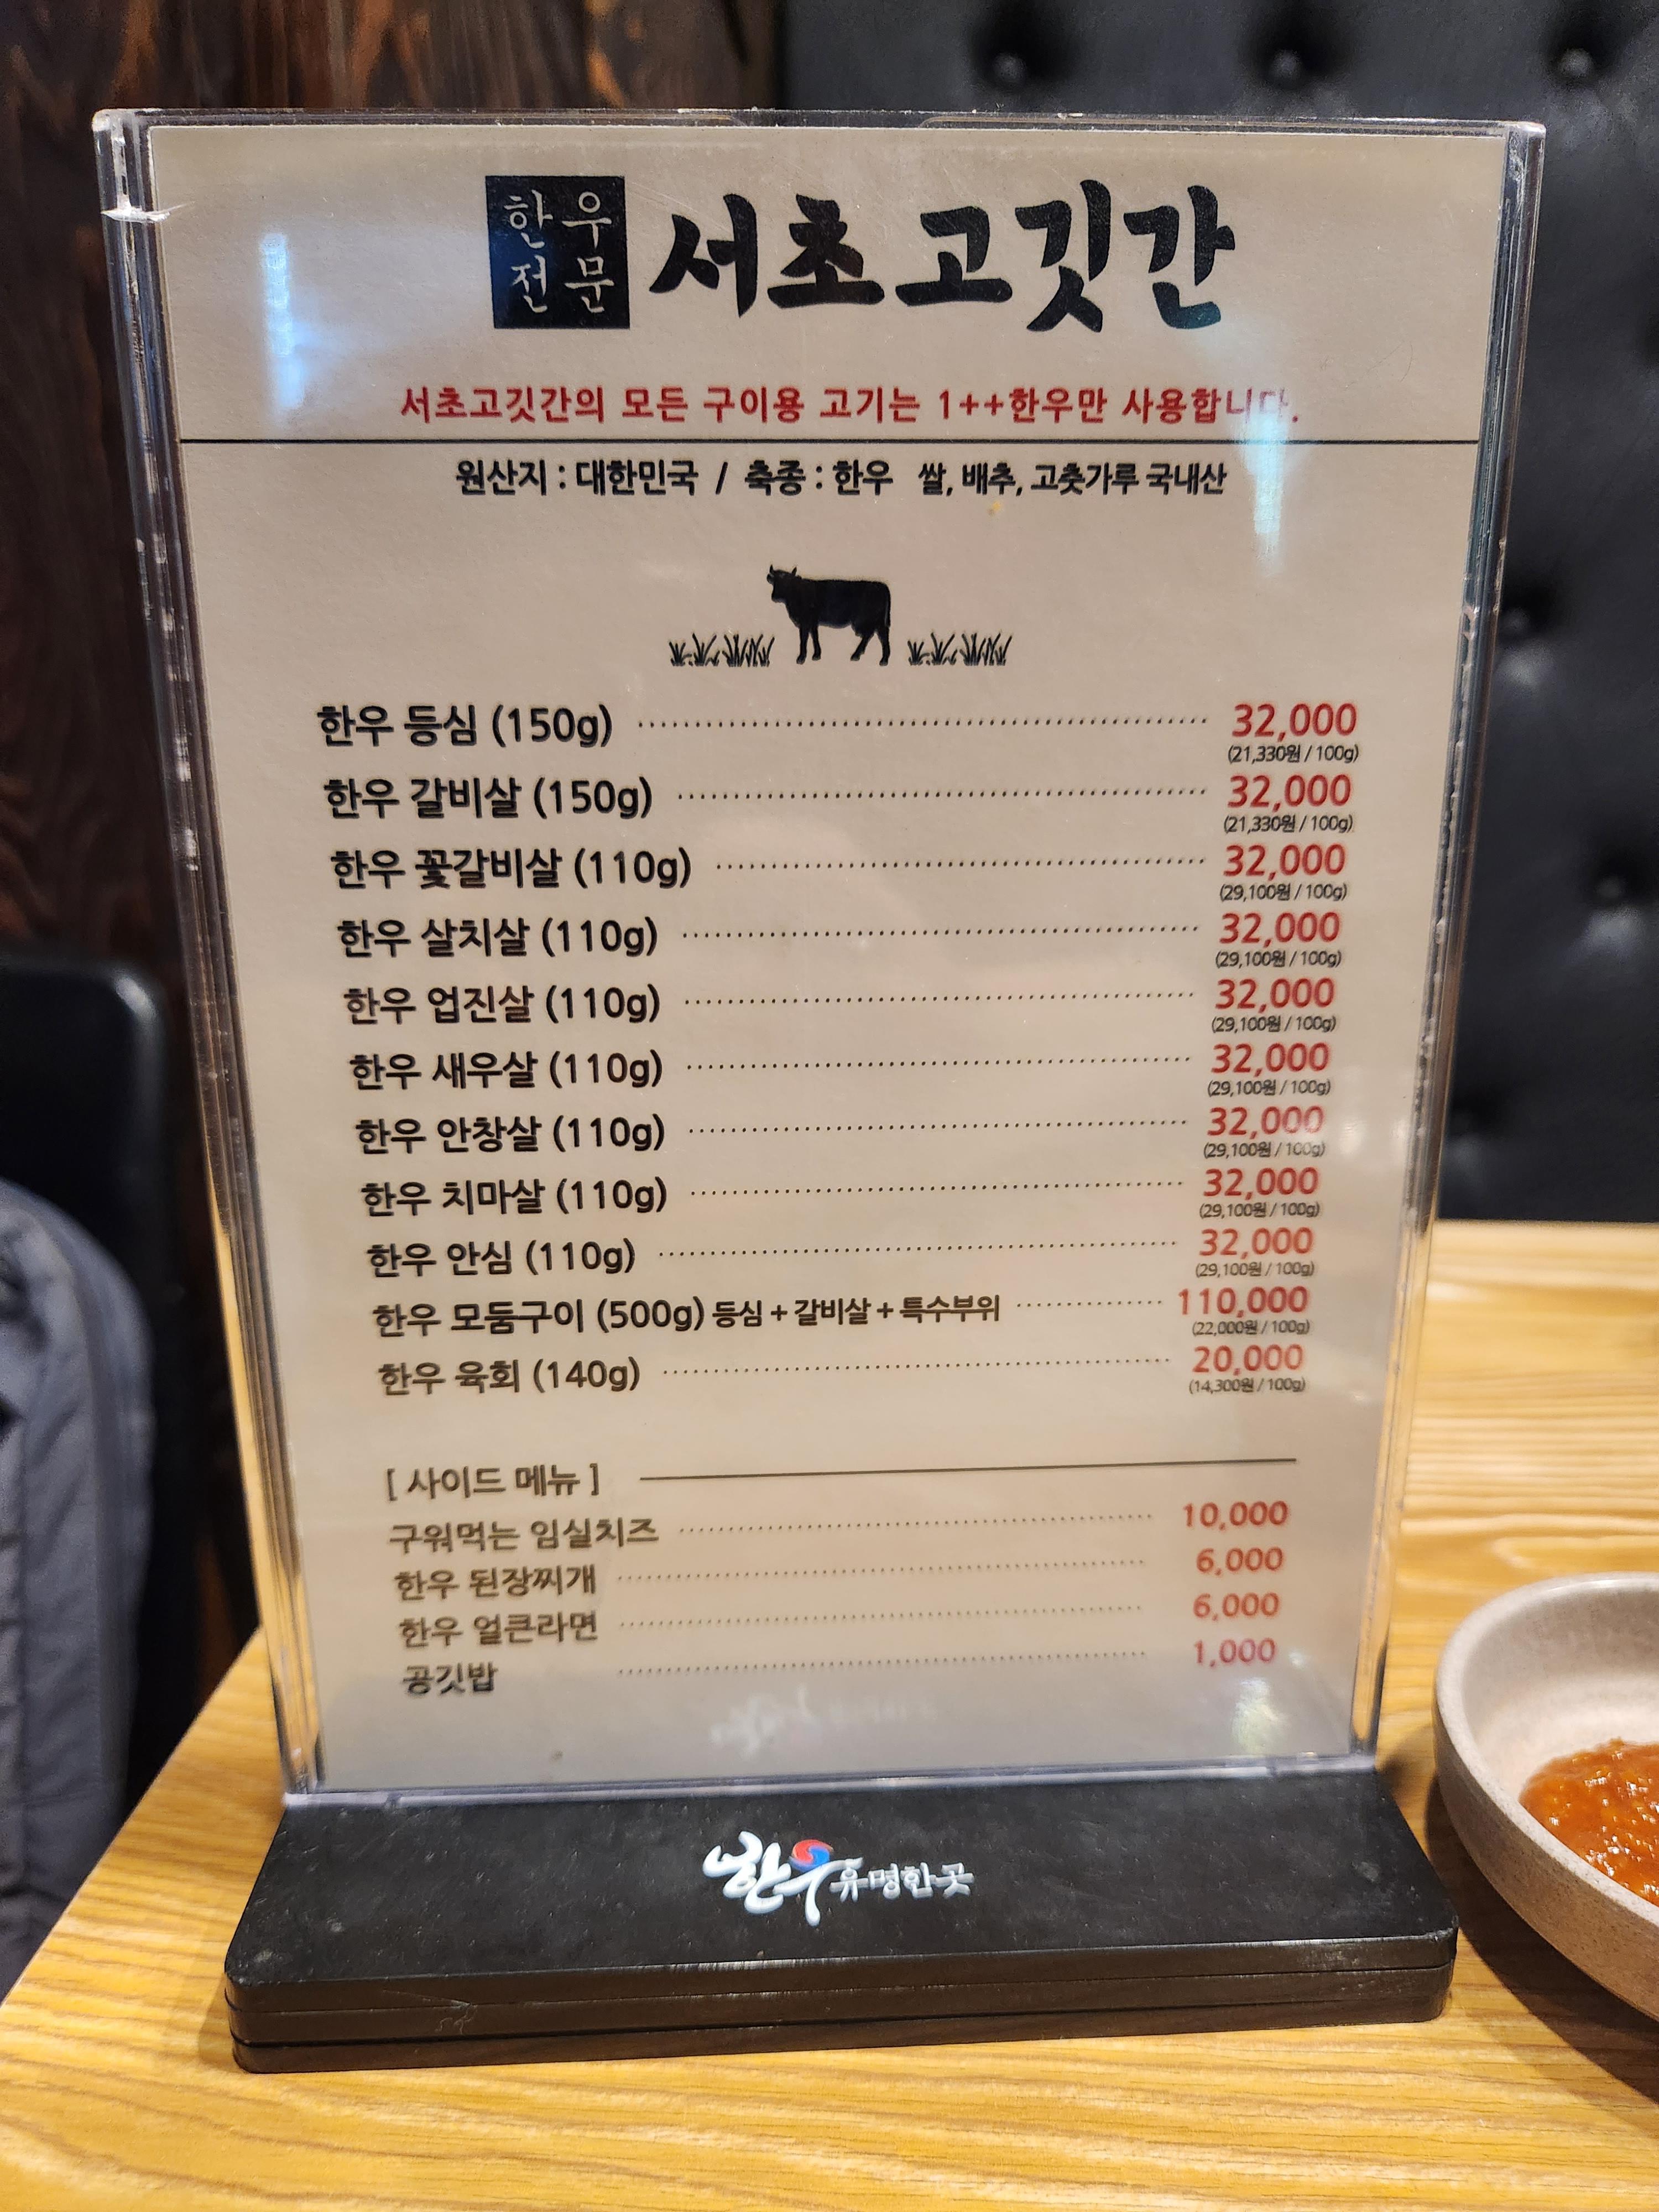 한우
전문
서초고깃간
서초고깃간의 모든 구이용 고기는 1++한우만 사용합니다.
원산지 : 대한민국 / 축종 : 한우 쌀, 배추, 고춧가루 국내산
한우 등심 (150g) 32,000
(21,330원 / 100g)
한우 갈비살 (150g) 32,000
(21,330원 / 100g)
한우 꽃갈비살 (110g) 32,000
(29,100원 / 100g)
한우 살치살 (110g) 32,000
(29,100원 / 100g)
한우 업진살 (110g) 32,000
(29,100원 / 100g)
한우 새우살 (110g) 32,000
(29,100원 / 100g)
한우 안창살 (110g) 32,000
(29,100원 / 100g)
한우 치마살 (110g) 32,000
(29,100원 / 100g)
한우 안심 (110g) 32,000
(29,100원 / 100g)
한우 모둠구이 (500g) 등심 + 갈비살 + 특수부위 110,000
(22,000원 / 100g)
한우 육회 (140g) 20,000
(14,300원 / 100g)
[ 사이드 메뉴 ]
구워먹는 임실치즈 10,000
한우 된장찌개 6,000
한우 얼큰라면 6,000
공깃밥 1,000
한우 유명한곳